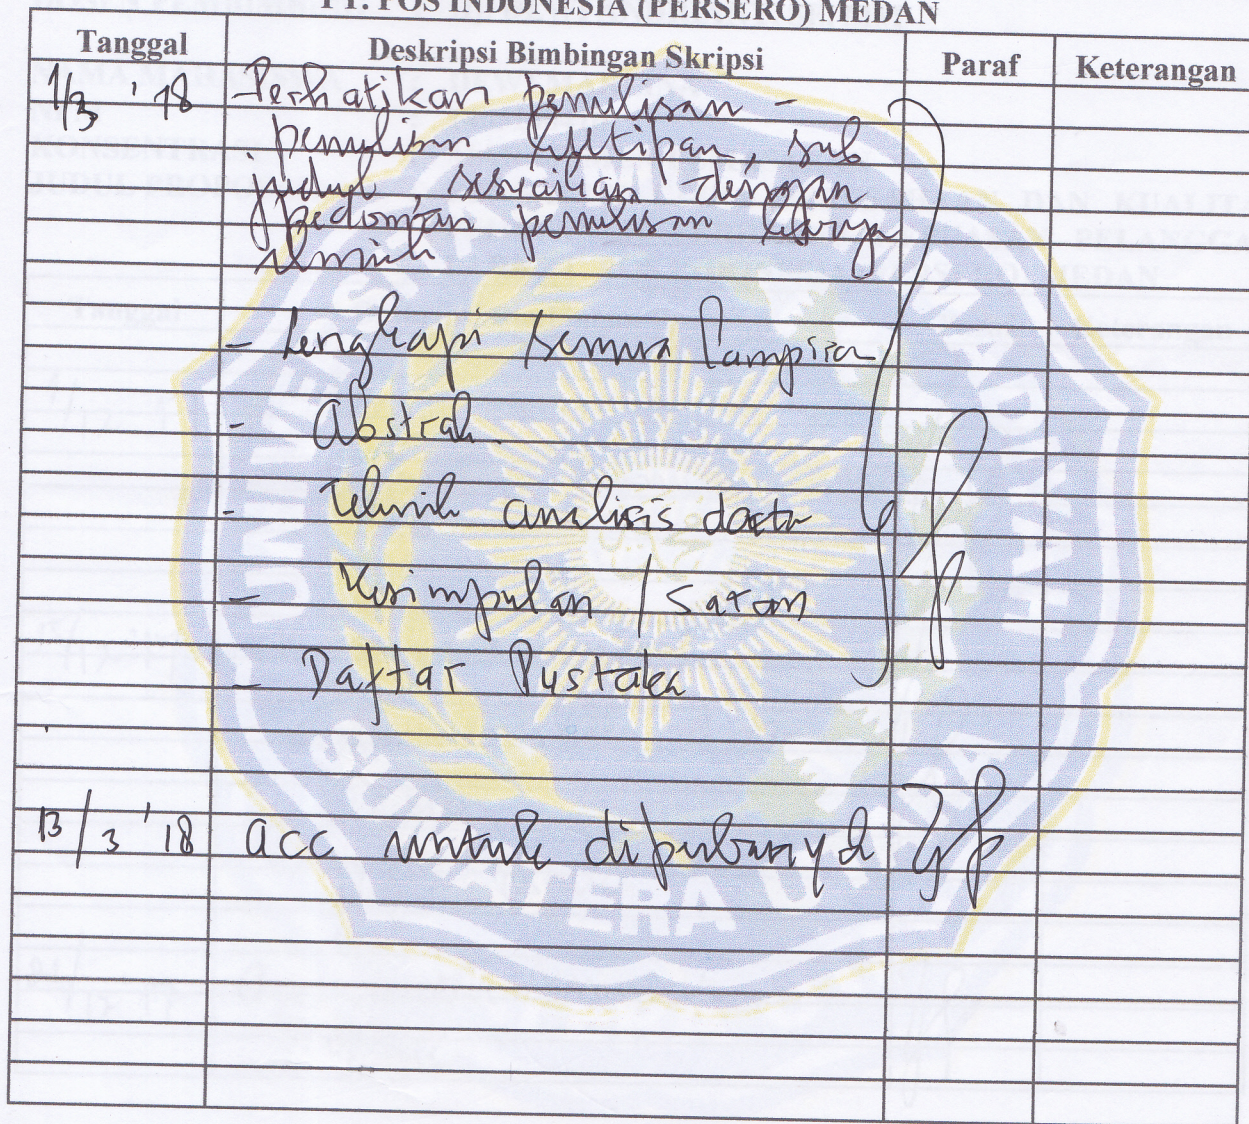 PT. POS INDONESIA (PERSERO) MEDAN
Tanggal Deskripsi Bimbingan Skripsi Paraf Keterangan
1/3 '18 Perhatikan penulisan -
penulisan kutipan, sub
judul, sesuaikan dengan
pedoman penulisan karya
ilmiah
- Lengkapi semua lampiran
- Abstrak.
- Teknik analisis data
- Kesimpulan / Saran
- Daftar Pustaka
13/3 '18 acc untuk
UNIVERSITAS MUHAMMADIYAH
SUMATERA UTARA